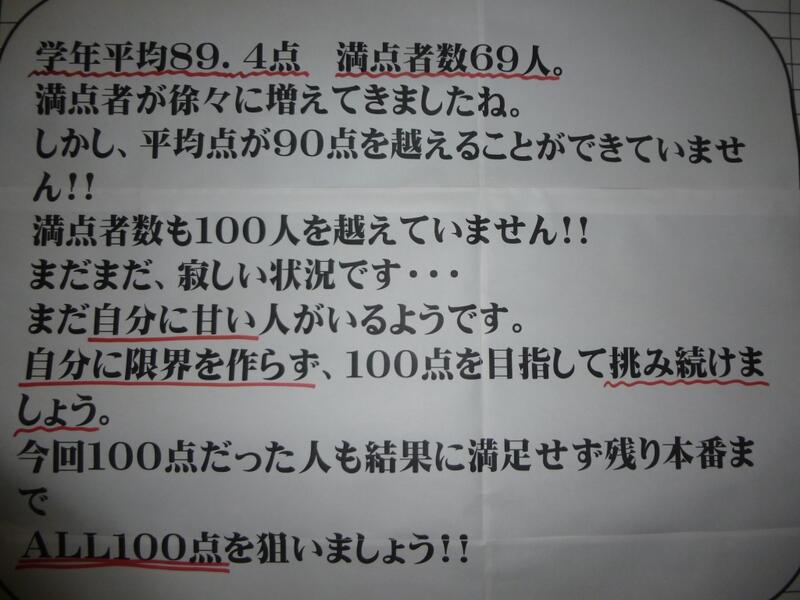 学年平均89.4点　満点者数69人。
満点者が徐々に増えてきましたね。
しかし、平均点が90点を越えることができていませ
ん!!
満点者数も100人を越えていません!!
まだまだ、寂しい状況です・・・
まだ自分に甘い人がいるようです。
自分に限界を作らず、100点を目指して挑み続けま
しょう。
今回100点だった人も結果に満足せず残り本番ま
で
ALL100点を狙いましょう!!